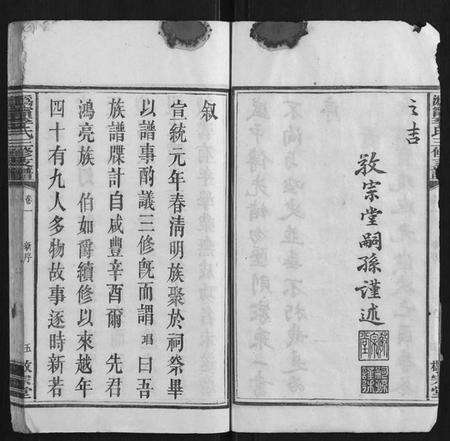 之吉
敦宗堂嗣孫謹述
敘
宣統元年春清明族聚於祠祭畢
以譜事酌議三修旣而謂 曰吾
族譜牒計自咸豐辛酉爾 先君
鴻亮族 伯如爵續修以來越年
四十有九人多物故事逐時新若
氏三修族譜
卷一
敘序
五 敦宗堂